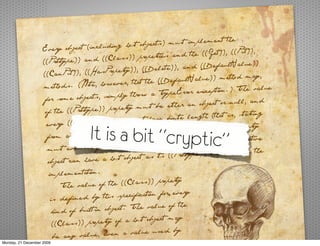 Every object (including host objects) must implement the
[[Prototype]] and [[Class]] properties and the [[Get]], [[Put]],
[[CanPut]], [[HasProperty]], [[Delete]], and [[DefaultValue]]
methods. (Note, however, that the [[DefaultValue]] method may,
for some objects, simply throw a TypeError exception.) The value
of the [[Prototype]] property must be either an object or null, and
every
from
It is a bit “cryptic”
must
object can have a host object as
the
implementation.
The value of the [[Class]] property
is defined by this specification for every
kind of built-in object. The value of the
[[Class]] property of a host object may
be any value, even a value used by
Monday, 21 December 2009